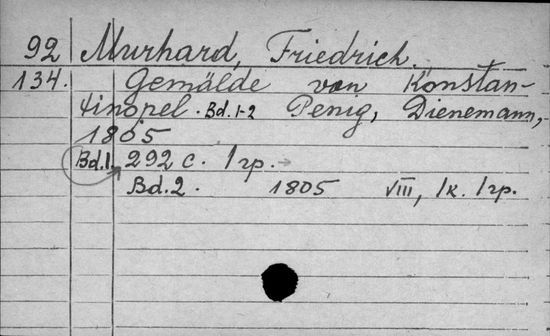 92 Murhard, Friedrich.
134. Gemälde von Konstan-
tinopel. Bd. 1-2 Penig, Dienemann,
1805
Bd.1. 292 c. 1 гр.
Bd. 2. 1805 VIII, 1 к. 1 гр.